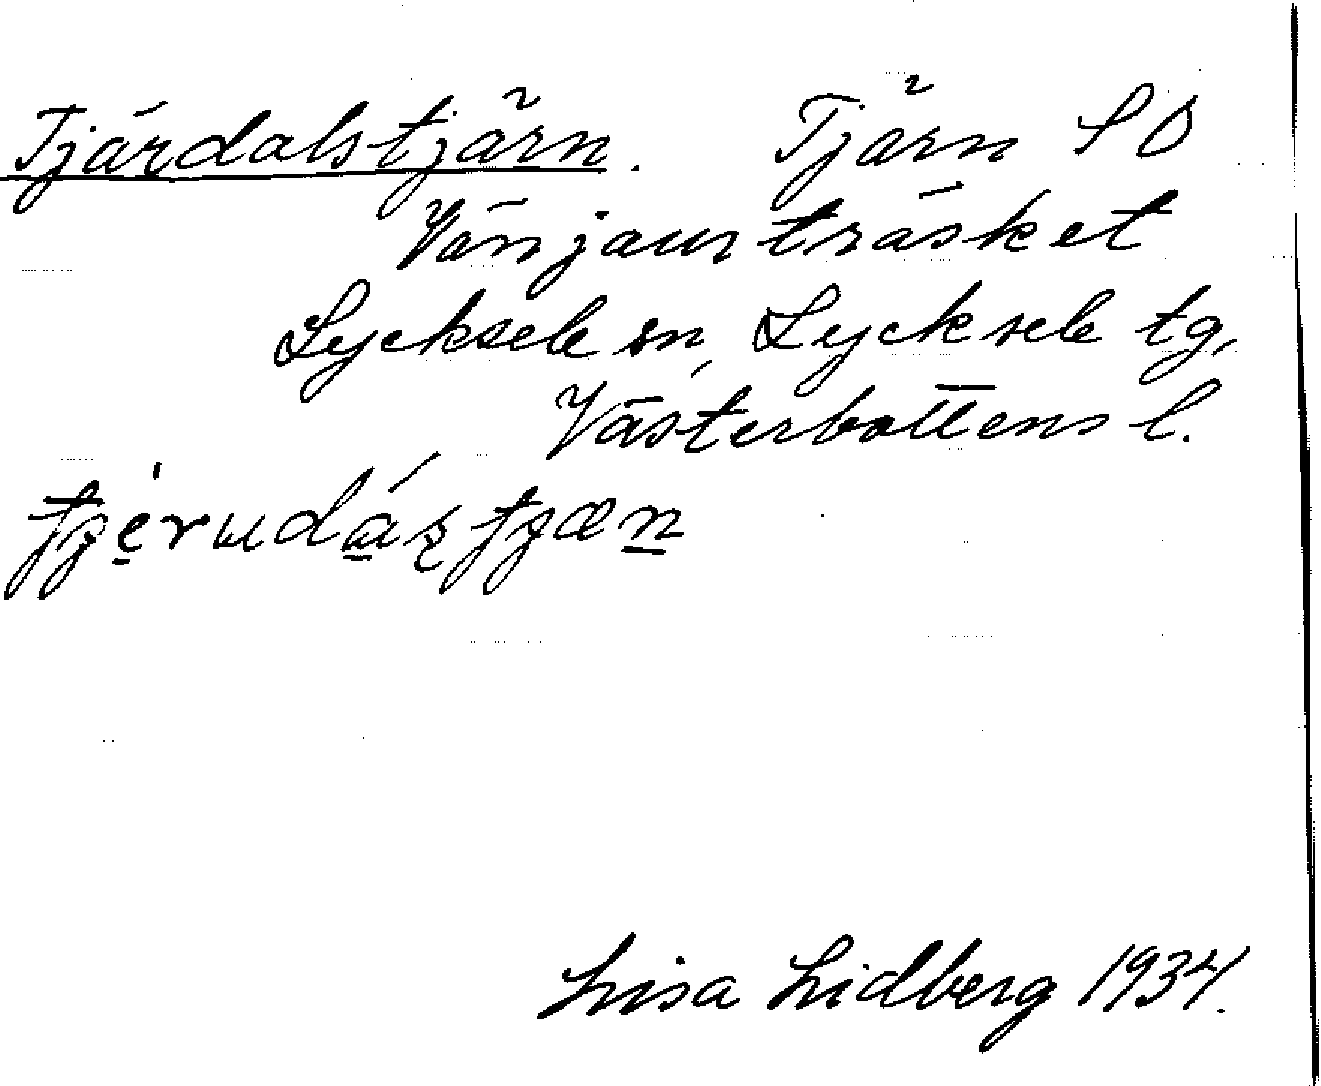 Tjärdalstjärn. Tjärn SO
Vänjaurträsket
Lycksele sn, Lycksele tg,
Västerbottens l.
Lisa Lidberg 1934.